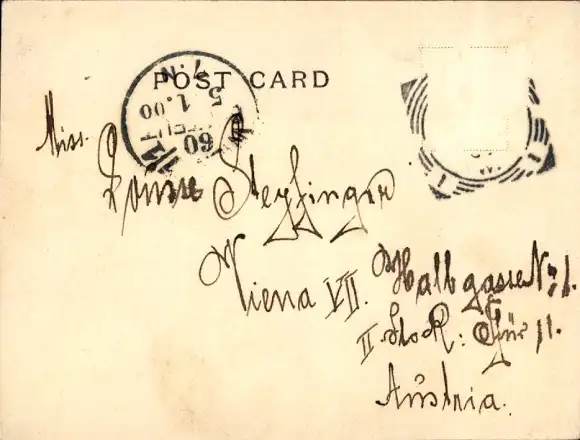 POST CARD
Miss.
Louise Steffinger
Viena VII. Halbgasse No: 1.
II Stock: Thür 11.
Austria.
1.00